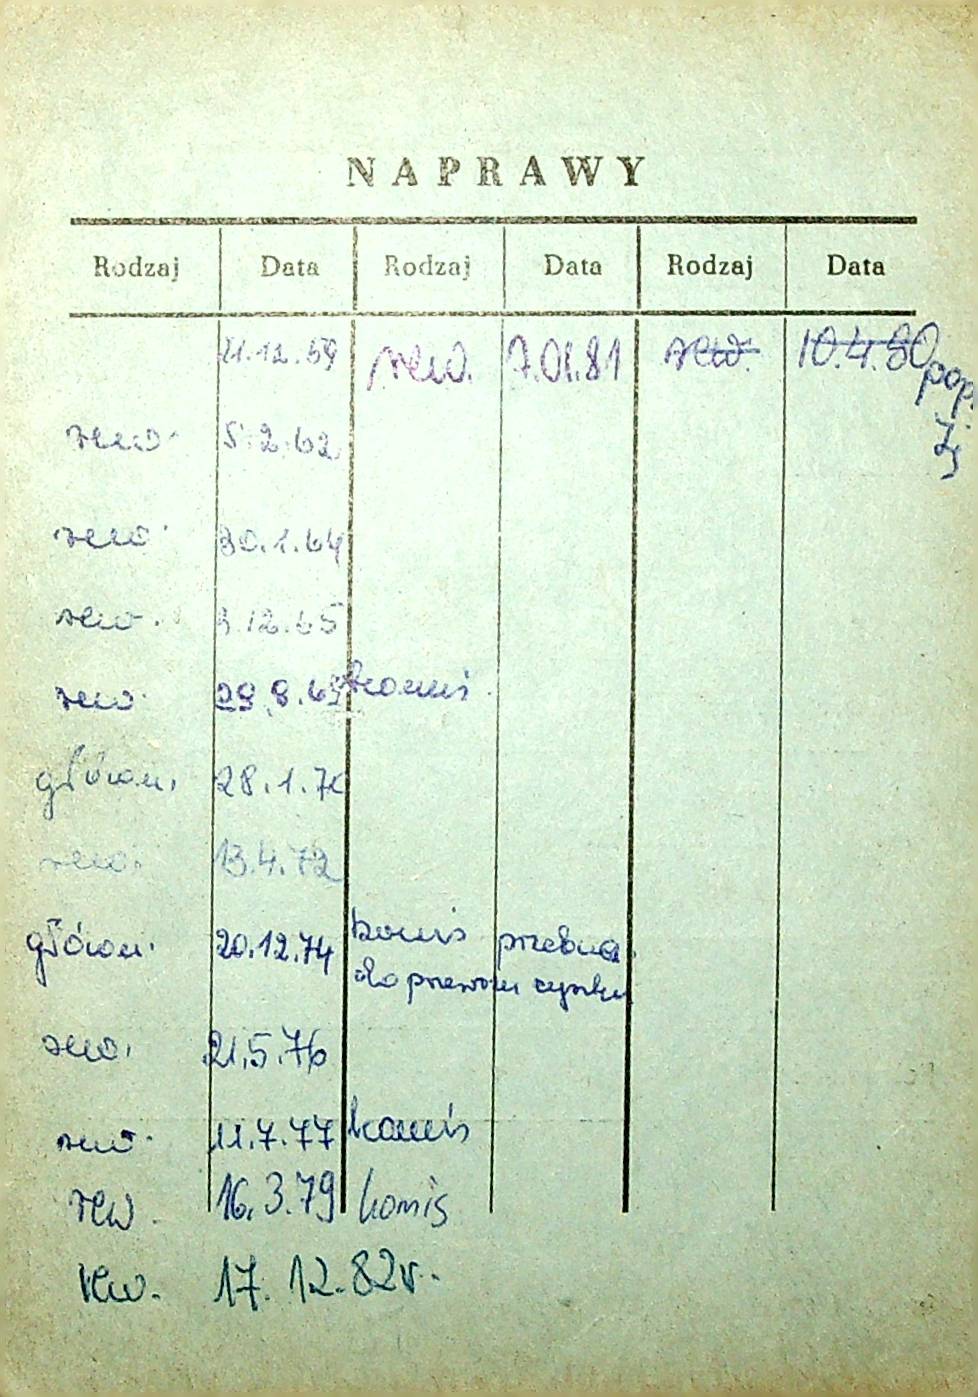 NAPRAWY
Rodzaj Data Rodzaj Data Rodzaj Data
21.12.59 rew. 7.01.81 rew. 10.4.80 pop.
rew. 5.2.62
rew. 30.1.64
rew. 3.12.65
rew. 29.8.69 komis
główn. 28.1.70
rew. 13.4.72
główn. 20.12.74 komis przebud.
do przewozu
rew. 21.5.76
rew. 11.7.77 komis
rew. 16.3.79 komis
rew. 17.12.82r.